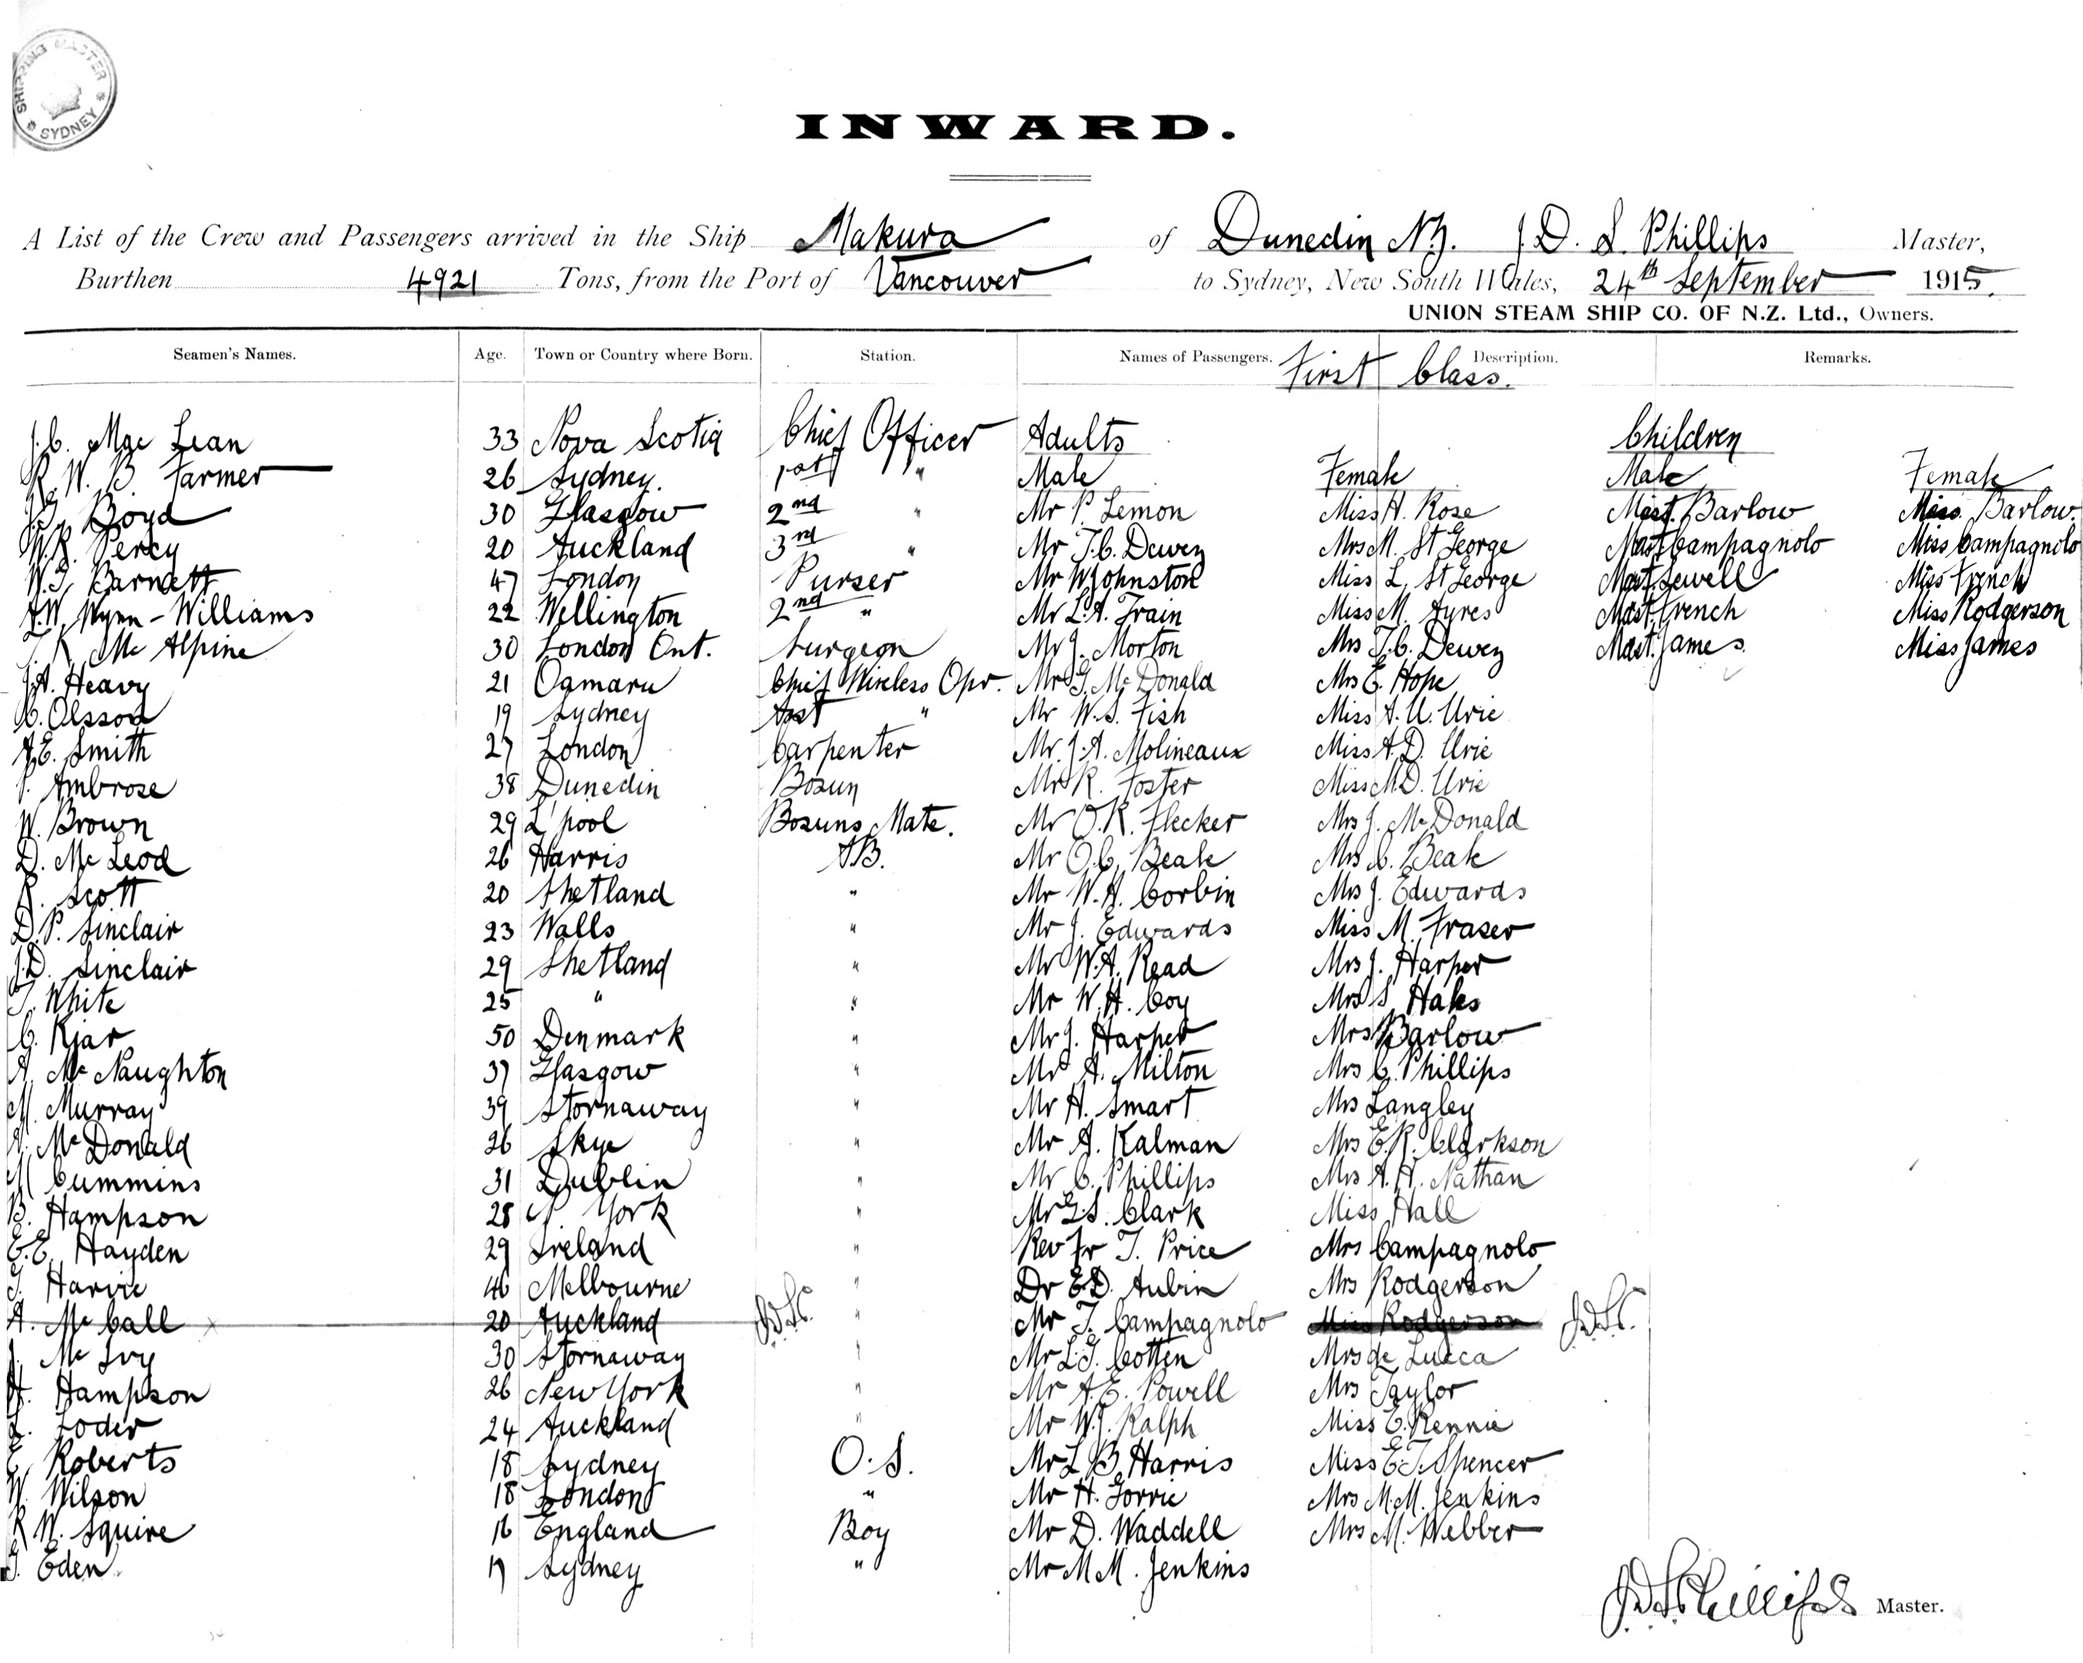 SHIPPING MASTER * SYDNEY *
INWARD.
A List of the Crew and Passengers arrived in the Ship Makura of Dunedin N.Z. J. D. S. Phillips Master,
Burthen 4921 Tons, from the Port of Vancouver to Sydney, New South Wales, 24th September 1915.
UNION STEAM SHIP CO. OF N.Z. Ltd., Owners.
Seamen's Names. Age. Town or Country where Born. Station. Names of Passengers. First Class. Description. Remarks.
J.C. Mac Lean 33 Nova Scotia Chief Officer Adults Children
R. W. B. Farmer 26 Sydney. 1st " Male Female Male Female
Boyd 30 Glasgow 2nd " Mr P. Lemon Miss H. Rose Mast. Barlow Miss. Barlow.
W.R. Percy 20 Auckland 3rd " Mr T.C. Dewez Mrs M. St George Mast Campagnolo Miss Campagnolo
W.G. Barnett 47 London Purser Mr W Johnston Miss L. St George Mast. Sewell Miss French
Wynn-Williams 22 Wellington 2nd " Mr L.A. Train Miss M. Ayres Mast. French Miss Rodgerson
Mc Alpine 30 London Ont. Surgeon Mr J. Morton Mrs T.C. Dewez Mast. James. Miss James
J.A. Heavy 21 Oamaru Chief Wireless Opr. Mr G. Mc Donald Mrs E. Hope
C. Olsson 19 Sydney Asst " Mr W.S. Fish Miss A. U. Urie
A.E. Smith 27 London Carpenter Mr. J.A. Molineaux Miss A.D. Urie
Ambrose 38 Dunedin Bosun Mr R. Foster Miss M.D. Urie
W. Brown 29 L'pool Bosuns Mate. Mr O.R. Flecker Mrs J. Mc Donald
D. Mc Leod 26 Harris A.B. Mr O.C. Beale Mrs C. Beale
R. Scott 20 Shetland " Mr W.H. Corbin Mrs J. Edwards
D.P. Sinclair 23 Walls " Mr J. Edwards Miss M. Fraser
J.D. Sinclair 29 Shetland " Mr W.A. Read Mrs J. Harper
T. White 25 " " Mr W.H. Coy Mrs S. Hales
C. Kjar 50 Denmark " Mr J. Harper Mrs Barlow
A. Mc Naughton 37 Glasgow " Mr A. Milton Mrs C. Phillips
M. Murray 39 Stornaway " Mr H. Smart Mrs Langley
A. Mc Donald 26 Skye " Mr A. Kalman Mrs E.R. Clarkson
M Cummins 31 Dublin " Mr C. Phillips Mrs A.H. Nathan
B. Hampson 28 N. York " Mr G.S. Clark Miss Hall
E.E. Hayden 29 Ireland " Rev Fr T. Price Mrs Campagnolo
T. Harvie 46 Melbourne " Dr E.D. Aubin Mrs Rodgerson
A. Mc Call 20 Auckland J.D.S.P. " Mr T. Campagnolo Miss Rodgerson J.D.S.P.
Mc Ivy 30 Stornaway " Mr L.G. Cotten Mrs de Lucca
H. Hampson 26 New York " Mr A.E. Powell Mrs Taylor
L. Loder 24 Auckland " Mr W.J. Ralph Miss E. Rennie
E Roberts 18 Sydney O.S. Mr L B. Harris Miss E.T. Spencer
W. Wilson 18 London " Mr H. Gorrie Mrs M.M. Jenkins
R W. Squire 16 England Boy Mr D. Waddell Mrs M. Webber
T. Eden 17 Sydney " Mr M M. Jenkins
J.D.S. Phillips Master.